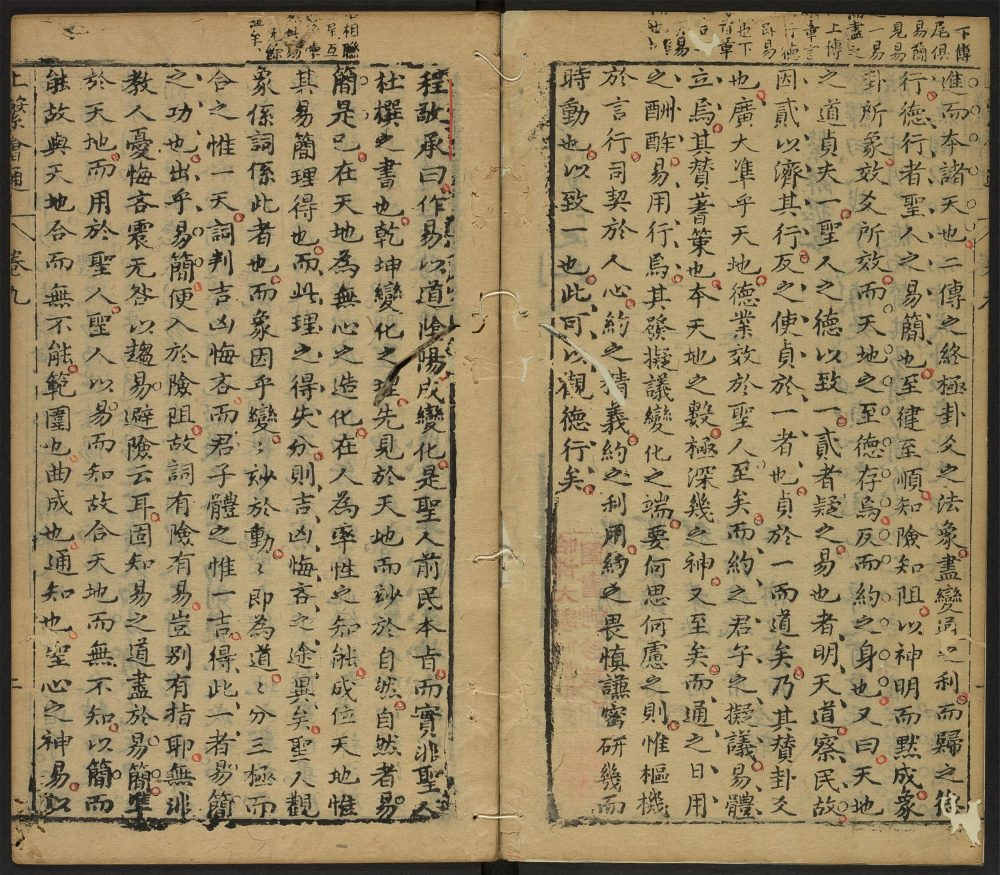 下傳
尾俱
易簡
見易
一易
盡之
上傳
章言
行德
即易
也下
有章
言一
易
也
進而本諸天也二傳之終極卦爻之法象盡變通之利而歸之德
行德行者聖人之易簡也至健至順知險知阻以神明而默成象
卦所象效爻所效而天地之至德存焉反而約之身也又曰天地
之道貞夫一聖人之德以致一貳者疑之易也者明天道察民故
因貳以濟其行反之使貞於一者也貞於一而道矣乃其贊卦爻
也廣大準乎天地德業效於聖人至矣而約之君子之擬議易體
立焉其贊蓍策也本天地之數極深幾之神又至矣而通之日用
之酬酢易用行焉其發擬議變化之端要何思何慮之則惟樞機
於言行司契於人心約之精義約之利用約之畏慎謙密研幾而
時動也以致一也此可以觀德行矣
相聯
至互
程敬承曰作易以道陰陽成變化是聖人前民本旨而實非聖人
杜撰之書也乾坤變化之理先見於天地而妙於自然自然者易
簡是已在天地為無心之造化在人為率性之知能成位天地惟
其易簡理得也而此理之得失分則吉凶悔吝之途異矣聖人觀
象係詞係此者也而象因乎變變妙於動動即為道道分三極而
合之惟一天詞判吉凶悔吝而君子體之惟一吉得此一者易簡
之功也出乎易簡便入於險阻故詞有險有易豈別有指耶無非
教人憂悔吝震无咎以趨易避險云耳固知易之道盡於易簡準
於天地而用於聖人聖人以易而知故合天地而無不知以簡而
能故與天地合而無不能範圍也曲成也通知也聖心之神易以
上繫會通 卷九